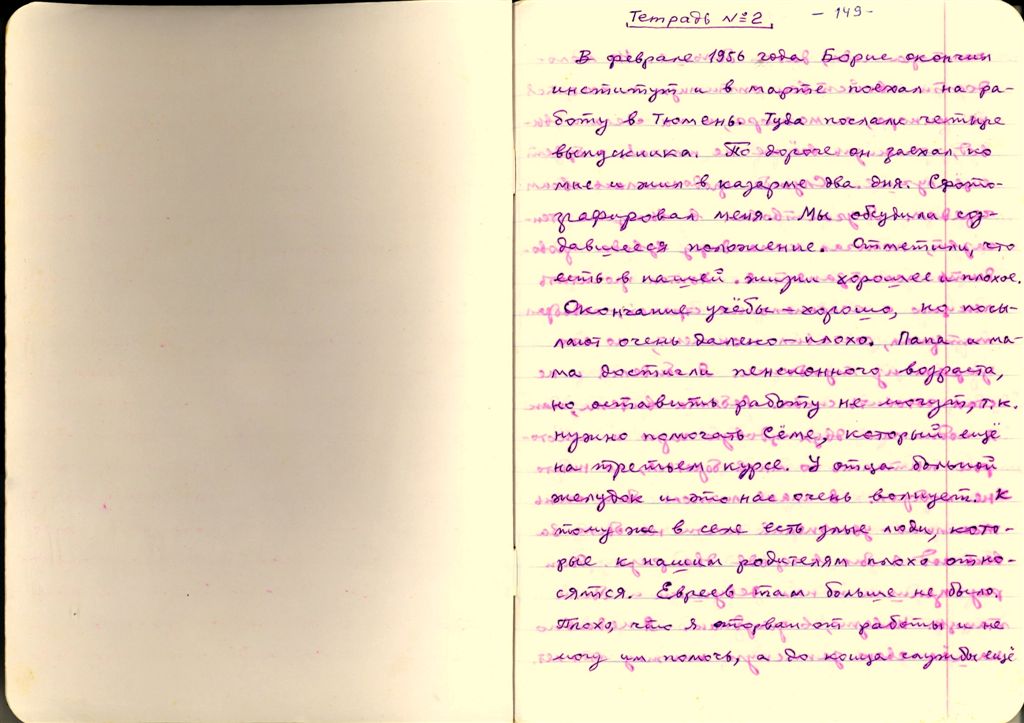 Тетрадь №2 - 149 -
В феврале 1956 года Борис окончил
институт и в марте поехал на ра-
боту в Тюмень. Туда послали четыре
выпускника. По дороге он заехал ко
мне и жил в казарме два дня. Сфото-
графировал меня. Мы обсудили соз-
давшееся положение. Отметили, что
есть в нашей жизни хорошее и плохое.
Окончание учёбы - хорошо, но посы-
лают очень далеко - плохо. Папа и ма-
ма достигли пенсионного возраста,
но оставить работу не могут, т.к.
нужно помогать Сёме, который ещё
на третьем курсе. У отца больной
желудок и это нас очень волнует. К
тому же в селе есть злые люди, кото-
рые к нашим родителям плохо отно-
сятся. Евреев там больше не было.
Плохо, что я оторван от работы и не
могу им помочь, а до конца службы ещё